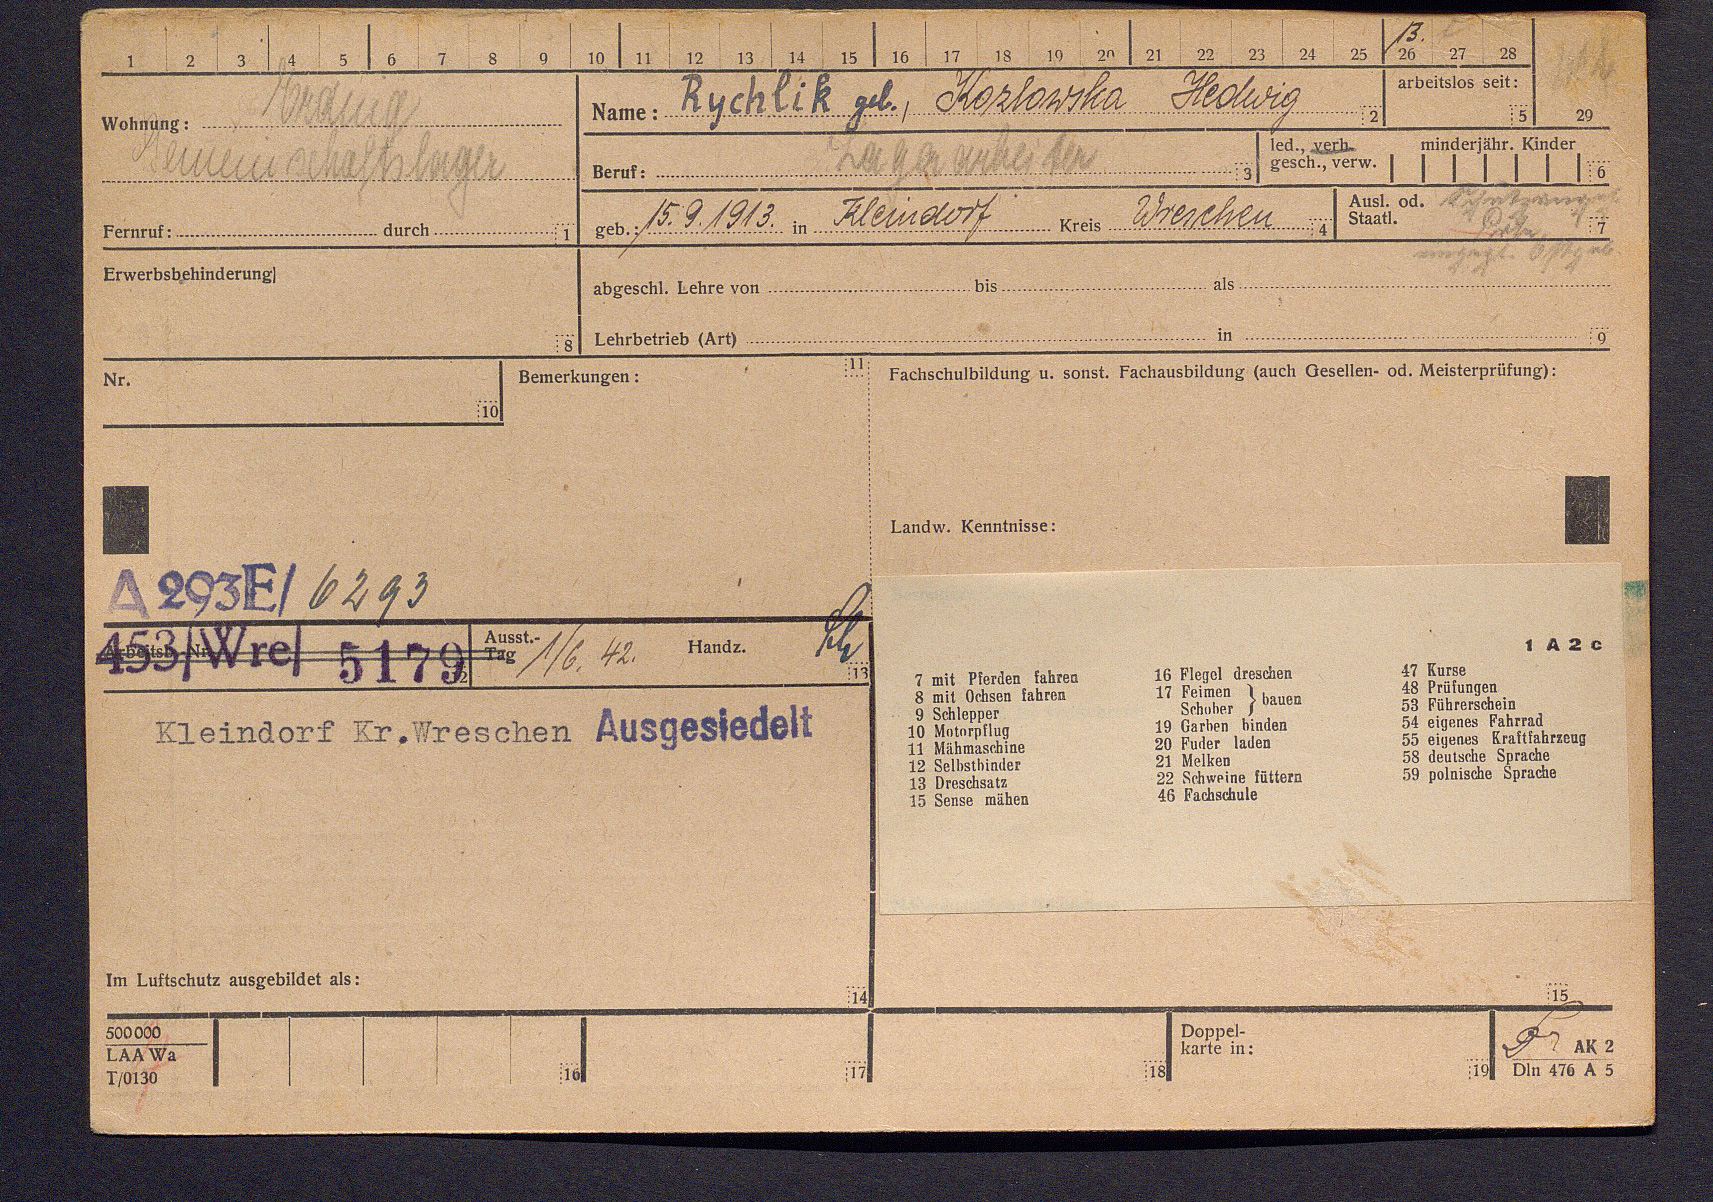 1 2 3 4 5 6 7 8 9 10 11 12 13 14 15 16 17 18 19 20 21 22 23 24 25 26 27 28
13.
Wohnung: Erding
Gemeinschaftslager
Name: Rychlik geb., Kozlowska Hedwig 2
arbeitslos seit: 5
29
Beruf: Lagerarbeiter 3
led., verh.
gesch., verw.
minderjähr. Kinder
6
Fernruf: durch 1
geb.: 15.9.1913. in Kleindorf Kreis Wreschen 4
Ausl. od.
Staatl.
7
Erwerbsbehinderung
8
abgeschl. Lehre von bis als
Lehrbetrieb (Art) in 9
Nr.
10
Bemerkungen: 11
Fachschulbildung u. sonst. Fachausbildung (auch Gesellen- od. Meisterprüfung):
Landw. Kenntnisse:
A 293E/ 6293
Arbeitsb. Nr.
453/Wre/ 5179
Ausst.-
Tag 1/6. 42. Handz.
13
Kleindorf Kr.Wreschen Ausgesiedelt
1 A 2 c
7 mit Pferden fahren
8 mit Ochsen fahren
9 Schlepper
10 Motorpflug
11 Mähmaschine
12 Selbstbinder
13 Dreschsatz
15 Sense mähen
16 Flegel dreschen
17 Feimen
Schober } bauen
19 Garben binden
20 Fuder laden
21 Melken
22 Schweine füttern
46 Fachschule
47 Kurse
48 Prüfungen
53 Führerschein
54 eigenes Fahrrad
55 eigenes Kraftfahrzeug
58 deutsche Sprache
59 polnische Sprache
Im Luftschutz ausgebildet als:
14
15
500000
LAA Wa
T/0130
16
17
18
Doppel-
karte in:
19
AK 2
Dln 476 A 5